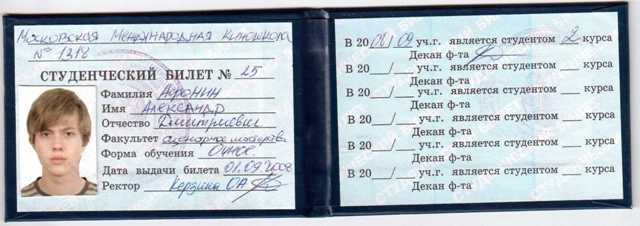 Московская Международная Киношкола
№ 1318
СТУДЕНЧЕСКИЙ БИЛЕТ № 25
Фамилия Афонин
Имя Александр
Отчество Дмитриевич
Факультет сценарное мастерство
Форма обучения Очное
Дата выдачи билета 01.09.2008
Ректор Керзина ОА
В 2008/09 уч.г. является студентом 2 курса
Декан ф-та
В 20__/__ уч.г. является студентом __ курса
Декан ф-та
В 20__/__ уч.г. является студентом __ курса
Декан ф-та
В 20__/__ уч.г. является студентом __ курса
Декан ф-та
В 20__/__ уч.г. является студентом __ курса
Декан ф-та
В 20__/__ уч.г. является студентом __ курса
Декан ф-та